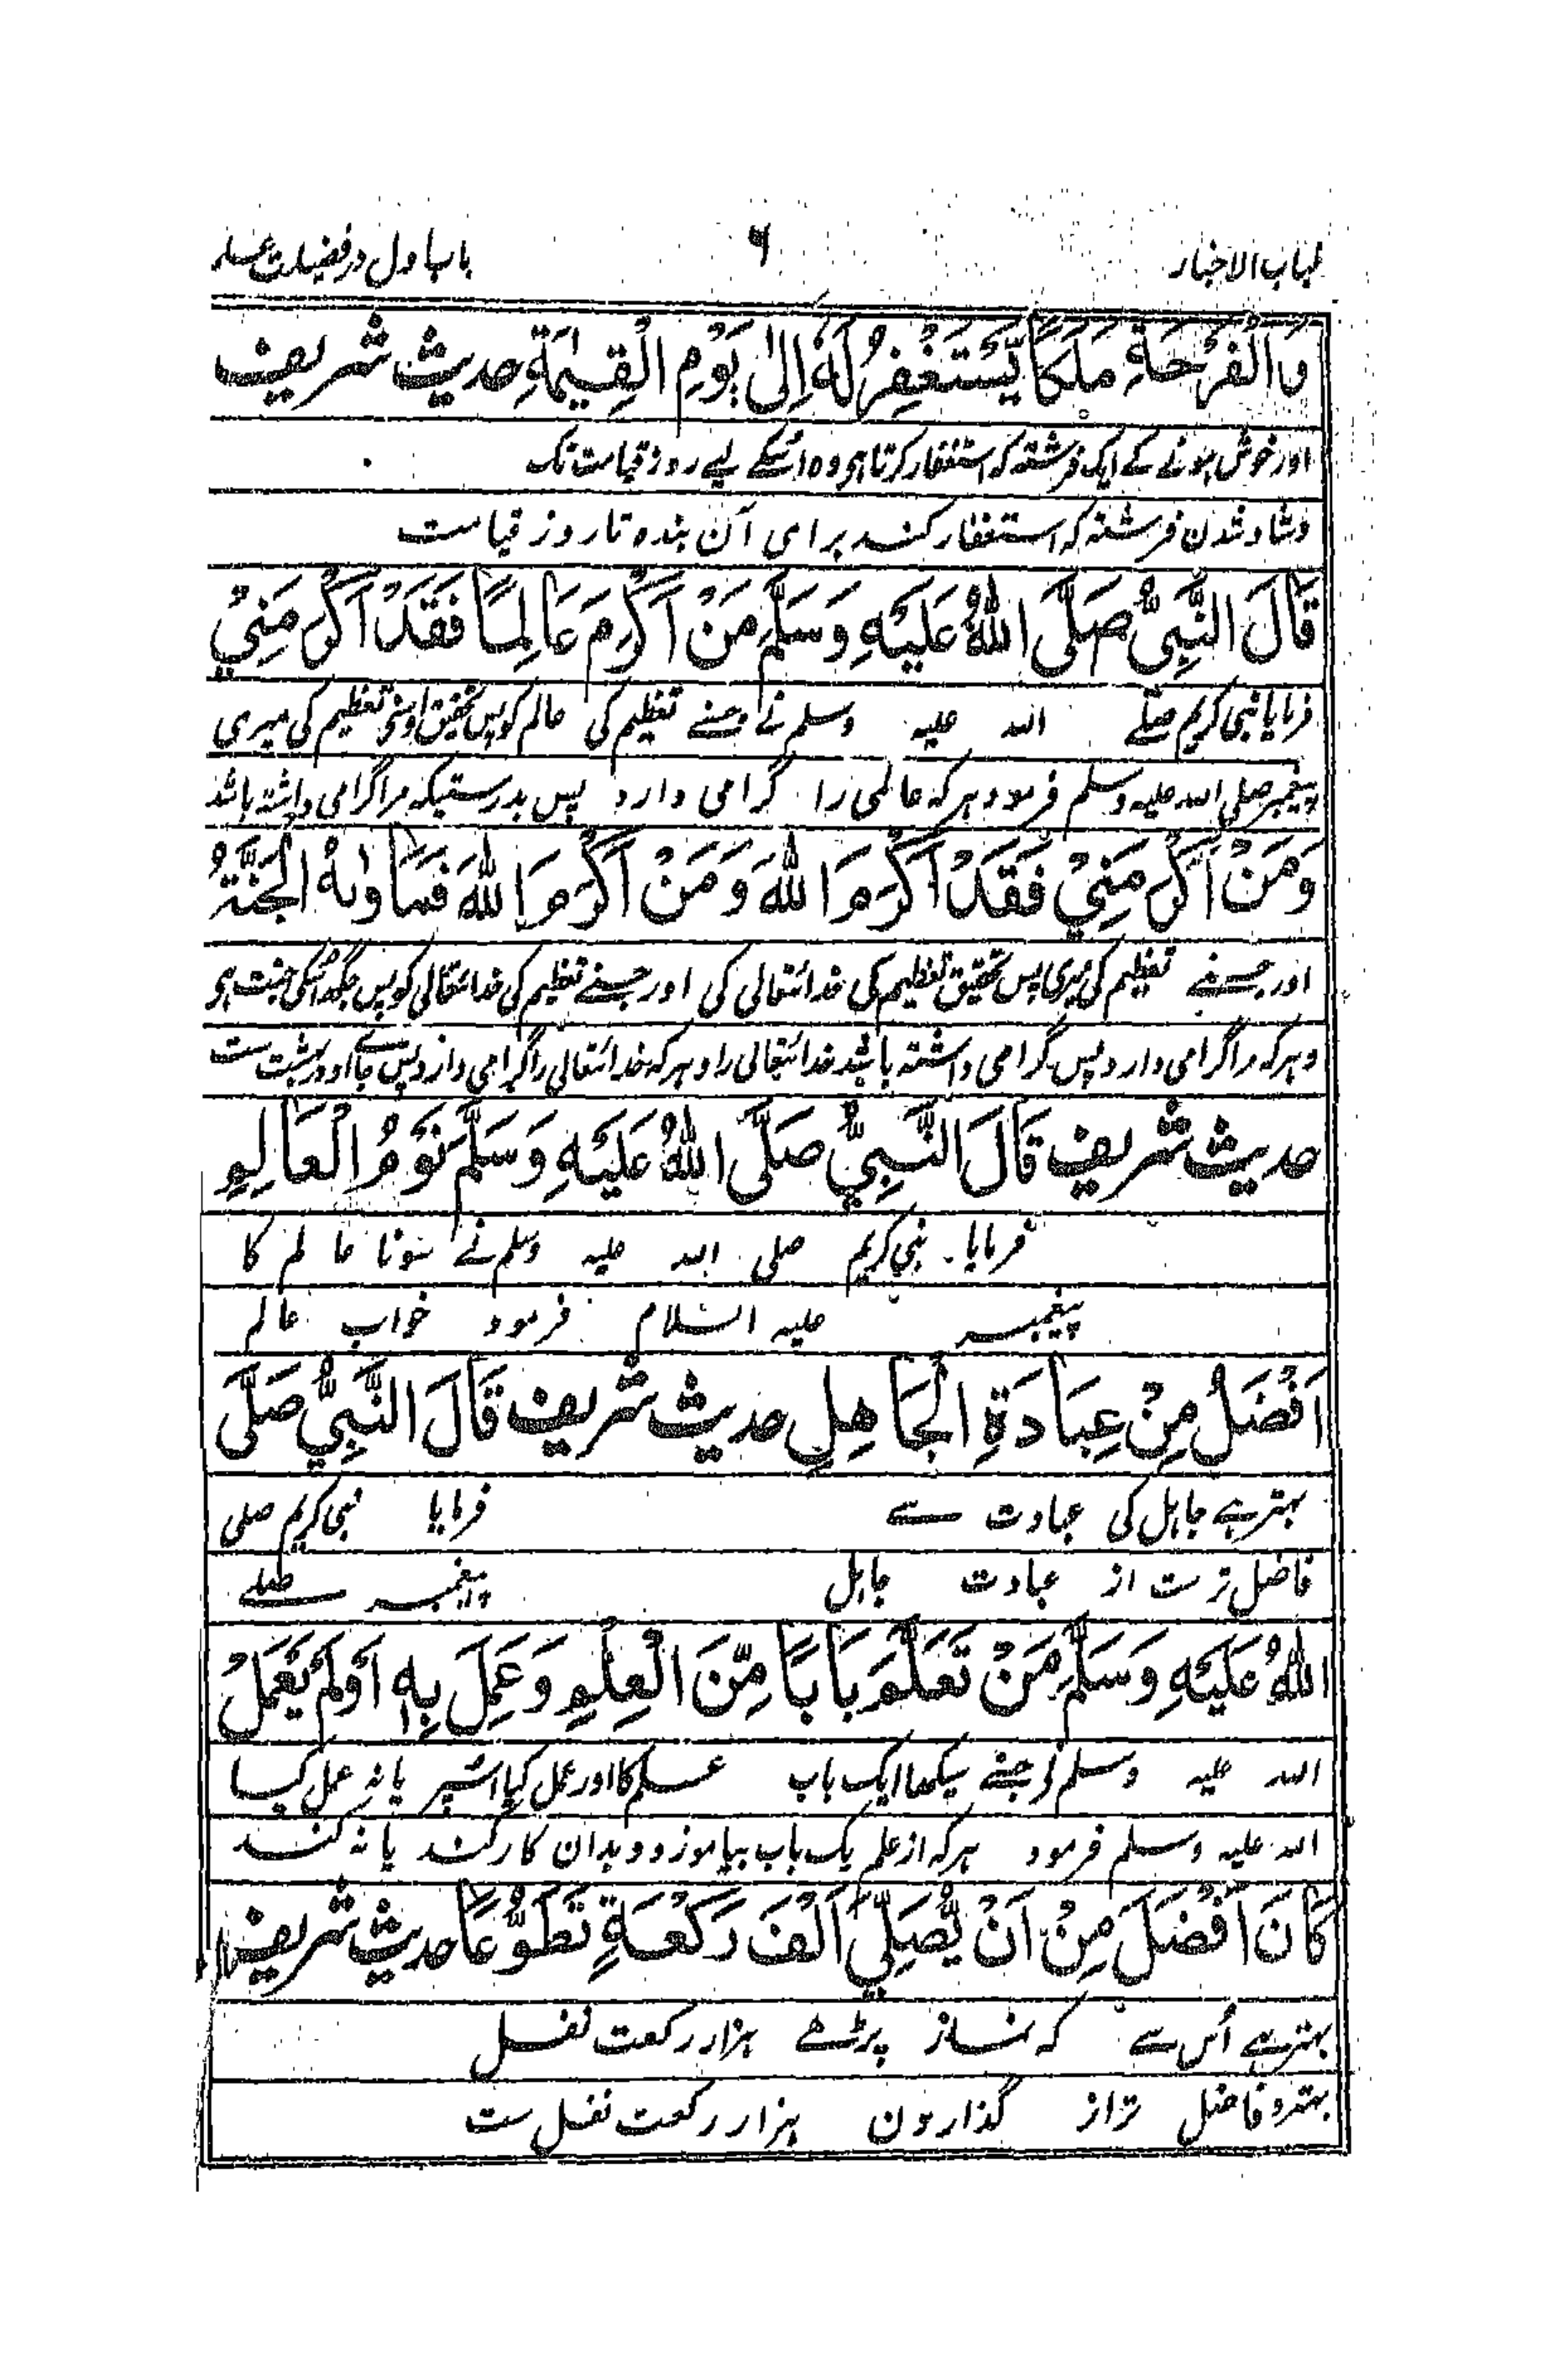 لباب الاخبار ۶ باب اول در فضیلت علم
وَالْفَرْحَةِ مَلَكًا يَّسْتَغْفِرُ لَهٗ اِلٰى يَوْمِ الْقِيٰمَةِ حدیث شریف
اور خوش ہونے کے ایک فرشتہ کہ استغفار کرتا ہی وہ اُسکے لیے روز قیامت تک
وشاد شدن فرشتہ کہ استغفار کند برای آن بندہ تا روز قیامت
قَالَ النَّبِيُّ صَلَّى اللّٰهُ عَلَيْهِ وَسَلَّمَ مَنْ اَكْرَمَ عَالِمًا فَقَدْ اَكْرَمَنِيْ
فرمایا نبی کریم صلے اللہ علیہ وسلم نے جسنے تعظیم کی عالم کو پس تحقیق اوسنے تعظیم کی میری
پیغمبر صلی اللہ علیہ وسلم فرمود ہر کہ عالمی را گرامی دارد پس بدرستیکہ مرا گرامی داشتہ باشد
وَمَنْ اَكْرَمَنِيْ فَقَدْ اَكْرَمَ اللّٰهَ وَمَنْ اَكْرَمَ اللّٰهَ فَمَاْوٰىهُ الْجَنَّةُ
اور جسنے تعظیم کی میری پس تحقیق تعظیم کی خدائتعالی کی اور جسنے تعظیم کی خدائتعالی کو پس جگہ اُسکی جنت ہی
وہر کہ مرا گرامی دارد پس گرامی داشتہ باشد خدائتعالی را وہر کہ خدائتعالی را گرامی دارد پس جای او در بہشت ست
حدیث شریف قَالَ النَّبِيُّ صَلَّى اللّٰهُ عَلَيْهِ وَسَلَّمَ نَوْمُ الْعَالِمِ
فرمایا نبی کریم صلی اللہ علیہ وسلم نے سونا عالم کا
پیغمبر علیہ السلام فرمود خواب عالم
اَفْضَلُ مِنْ عِبَادَةِ الْجَاهِلِ حدیث شریف قَالَ النَّبِيُّ صَلَّى
بہتر ہے جاہل کی عبادت سے فرمایا نبی کریم صلی
فاضل ترست از عبادت جاہل پیغمبر صلے
اللّٰهُ عَلَيْهِ وَسَلَّمَ مَنْ تَعَلَّمَ بَابًا مِّنَ الْعِلْمِ وَعَمِلَ بِهٖ اَوْ لَمْ يَعْمَلْ
اللہ علیہ وسلم نے جسنے سیکھا ایک باب علم کا اور عمل کیا اسپر یا نہ عمل کیا
اللہ علیہ وسلم فرمود ہر کہ از علم یک باب بیاموزد و بدان کار کند یا نہ کند
كَانَ اَفْضَلَ مِنْ اَنْ يُّصَلِّيَ اَلْفَ رَكْعَةٍ تَطَوُّعًا حدیث شریف
بہتر ہے اُس سے کہ نماز پڑھے ہزار رکعت نفل
بہتر و فاضل تر از گذاردن ہزار رکعت نفل ست